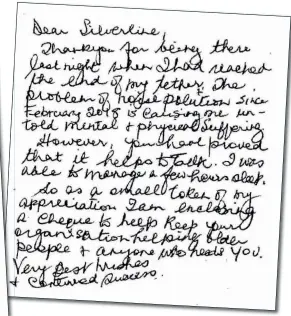 Dear Silverline,
Thankyou for being there
last night when I had reached
the end of my tether. The
problem of noise polution since
February 2018 is causing me un-
told mental & physical suffering.
However, you have proved
that it helps to talk. I was
able to manage a few hours sleep.
So as a small token of my
appreciation I am enclosing
a cheque to help keep your
organisation helping older
people & anyone who needs YOU.
Very Best wishes
& Continued success.